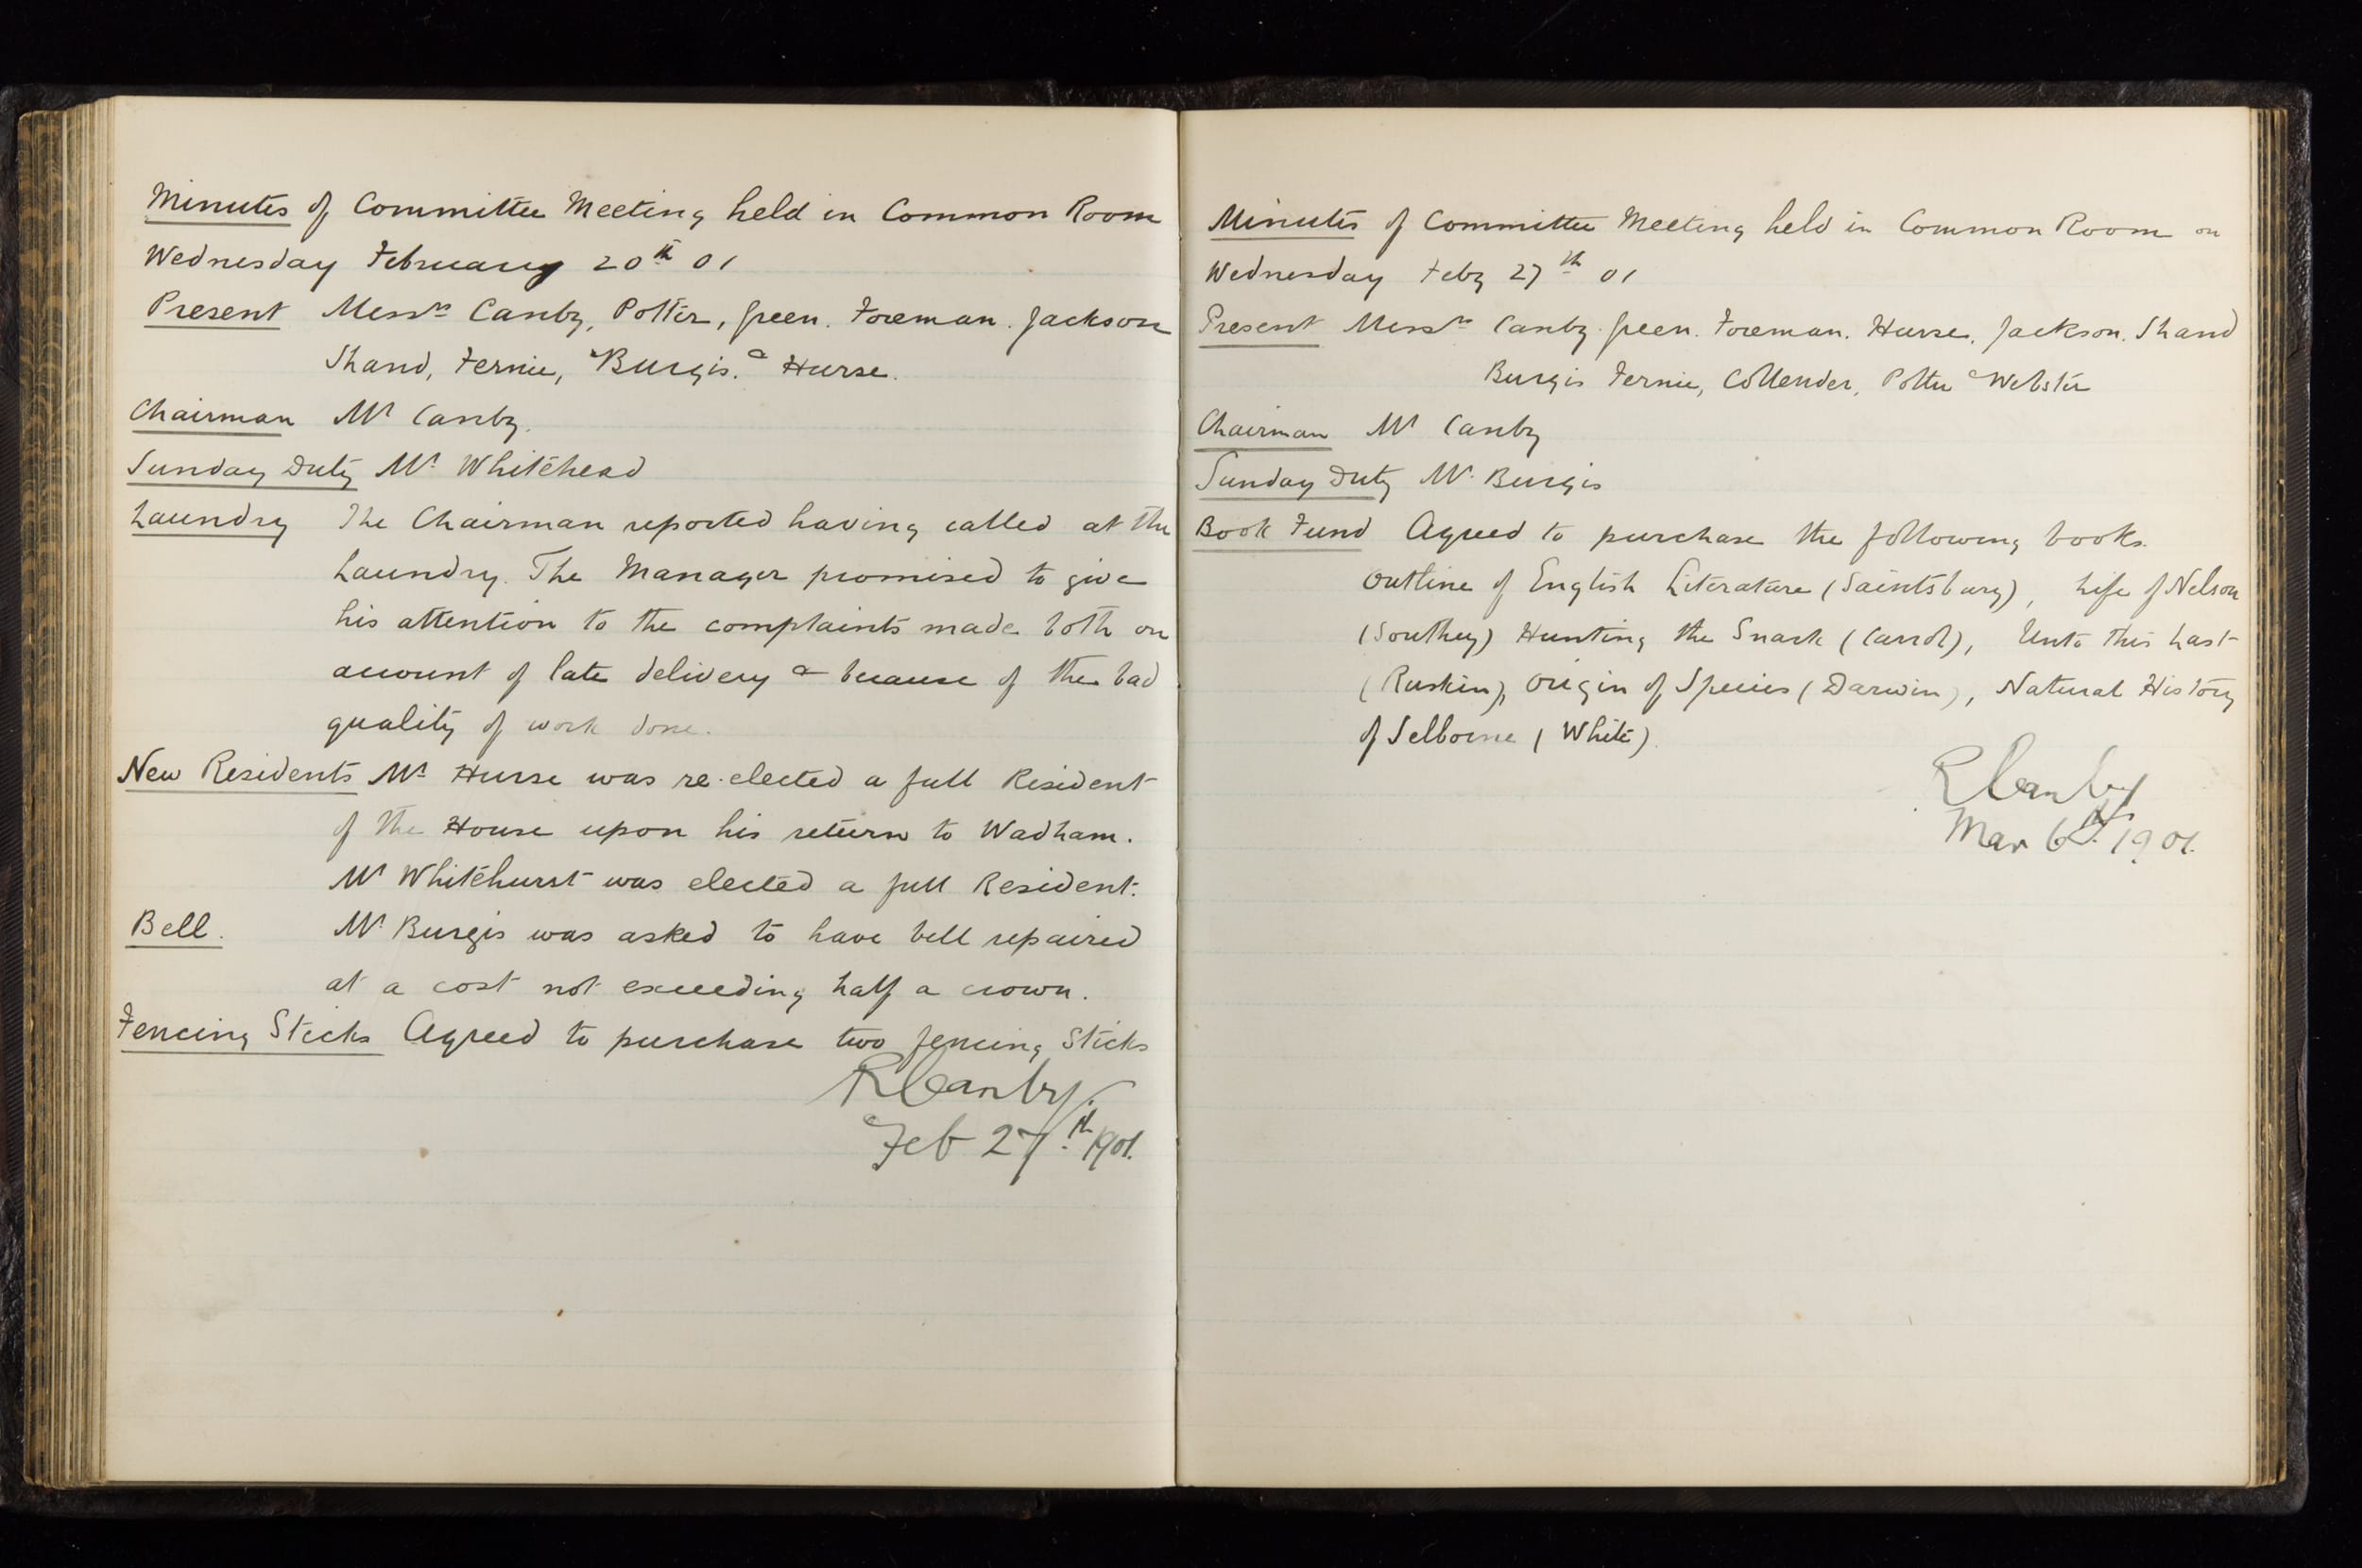 Minutes of Committee Meeting held in Common Room
Wednesday February 20th 01
Present Messrs Canby, Potter, Green. Foreman. Jackson
Shand, Fernie, Burgis. & Hurse.
Chairman Mr Canby.
Sunday Duty Mr Whitehead
Laundry The Chairman reported having called at the
Laundry. The Manager promised to give
his attention to the complaints made both on
account of late delivery & because of the bad
quality of work done.
New Residents Mr Hurse was re-elected a full Resident
of the House upon his return to Wadham.
Mr Whitehurst was elected a full Resident.
Bell. Mr Burgis was asked to have bell repaired
at a cost not exceeding half a crown.
Fencing Sticks Agreed to purchase two fencing sticks
R Canby.
Feb 27th 1901.
Minutes of Committee Meeting held in Common Room on
Wednesday Feby 27th 01
Present Messrs Canby. Green. Foreman. Hurse. Jackson. Shand
Burgis Fernie, Collender, Potter & Webster
Chairman Mr Canby
Sunday Duty Mr Burgis
Book Fund Agreed to purchase the following books.
Outline of English Literature (Saintsbury), Life of Nelson
(Southey) Hunting the Snark (Carrol), Unto this Last
(Ruskin), Origin of Species (Darwin), Natural History
of Selborne (White).
R Canby
Mar 6th. 1901.